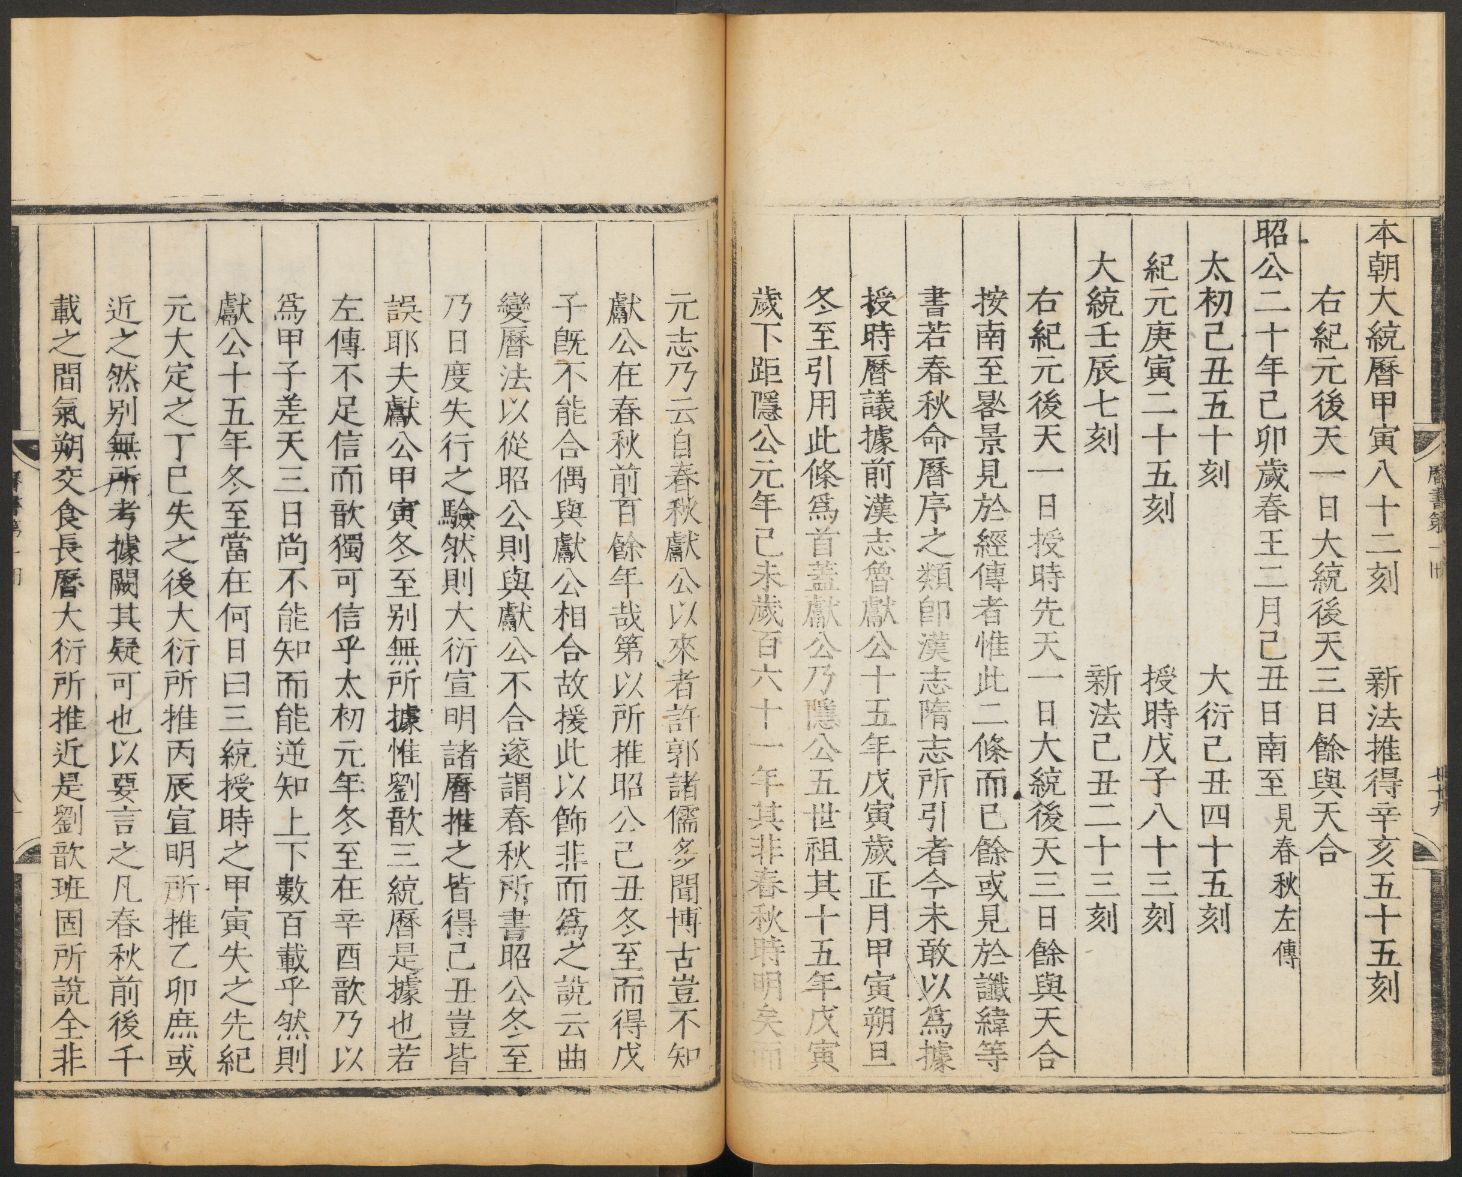 本朝大統曆甲寅八十二刻　新法推得辛亥五十五刻
右紀元後天一日大統後天三日餘與天合
昭公二十年己卯歲春王二月己丑日南至見春秋左傳
太初己丑五十刻　大衍己丑四十五刻
紀元庚寅二十五刻　授時戊子八十三刻
大統壬辰七刻　新法己丑二十三刻
右紀元後天一日授時先天一日大統後天三日餘與天合
按南至晷景見於經傳者惟此二條而已餘或見於讖緯等
書若春秋命曆序之類卽漢志隋志所引者今未敢以爲據
授時曆議據前漢志魯獻公十五年戊寅歲正月甲寅朔旦
冬至引用此條爲首蓋獻公乃隱公五世祖其十五年戊寅
歲下距隱公元年己未歲百六十一年其非春秋時明矣而
元志乃云自春秋獻公以來者許郭諸儒多聞博古豈不知
獻公在春秋前百餘年哉第以所推昭公己丑冬至而得戊
子旣不能合偶與獻公相合故援此以飾非而爲之說云曲
變曆法以從昭公則與獻公不合遂謂春秋所書昭公冬至
乃日度失行之驗然則大衍宣明諸曆推之皆得己丑豈皆
誤耶夫獻公甲寅冬至别無所據惟劉歆三統曆是據也若
左傳不足信而歆獨可信乎太初元年冬至在辛酉歆乃以
爲甲子差天三日尚不能知而能逆知上下數百載乎然則
獻公十五年冬至當在何日曰三統授時之甲寅失之先紀
元大定之丁巳失之後大衍所推丙辰宣明所推乙卯庶或
近之然别無所考據闕其疑可也以要言之凡春秋前後千
載之間氣朔交食長曆大衍所推近是劉歆班固所說全非
曆書第一冊